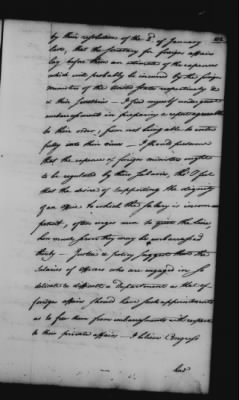 by their resolutions of the 8th of January
last, that the Secretary for foreign affairs
lay before them an estimate of the expences
which will probably be incurred by the foreign
ministers of the United States respectively
in their functions — I find myself under great
embarrassment in preparing a report agreeable
to their order, from not being able to enter
fully into their views — I should presume
that the expences of foreign ministers ought
to be regulated by their Salaries, tho I feel
that the desire of supporting the dignity
of an office to which the Salary is incom
petent, often urges men to pass the line
how much soever they may be embarrassed
thereby — Justice & policy suggest that the
Salaries of officers who are engaged in so
delicate & difficult a Department as that of
foreign affairs should have such appointments
as to free them from embarrassments with respect
to their private affairs — I believe Congress
had